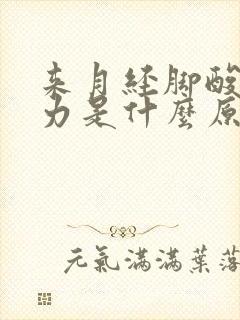 来月经脚酸
力是什麽原
元氣滿滿葉落